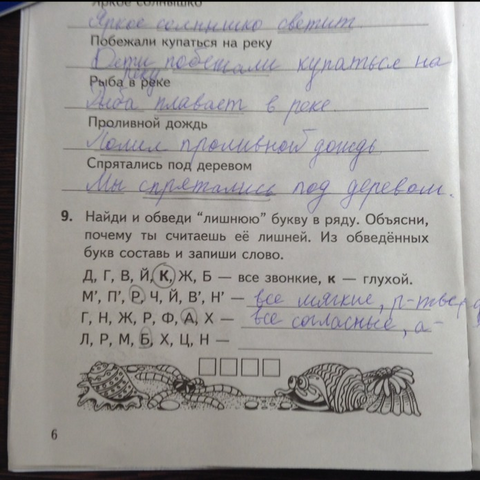 Яркое солнышко
Яркое солнышко светит
Побежали купаться на реку
Дети побежали купаться на
реку
Рыба в реке
Рыба плавает в реке
Проливной дождь
Полил проливной дождь
Спрятались под деревом
Мы спрятались под деревом.
9. Найди и обведи “лишнюю” букву в ряду. Объясни,
почему ты считаешь её лишней. Из обведённых
букв составь и запиши слово.
Д, Г, В, Й, К, Ж, Б — все звонкие, к — глухой.
М’, П’, Р, Ч, Й, В’, Н’ — все мягкие, р-твёрд
Г, Н, Ж, Р, Ф, А, Х — все согласные, а-
Л, Р, М, Б, Х, Ц, Н —
6